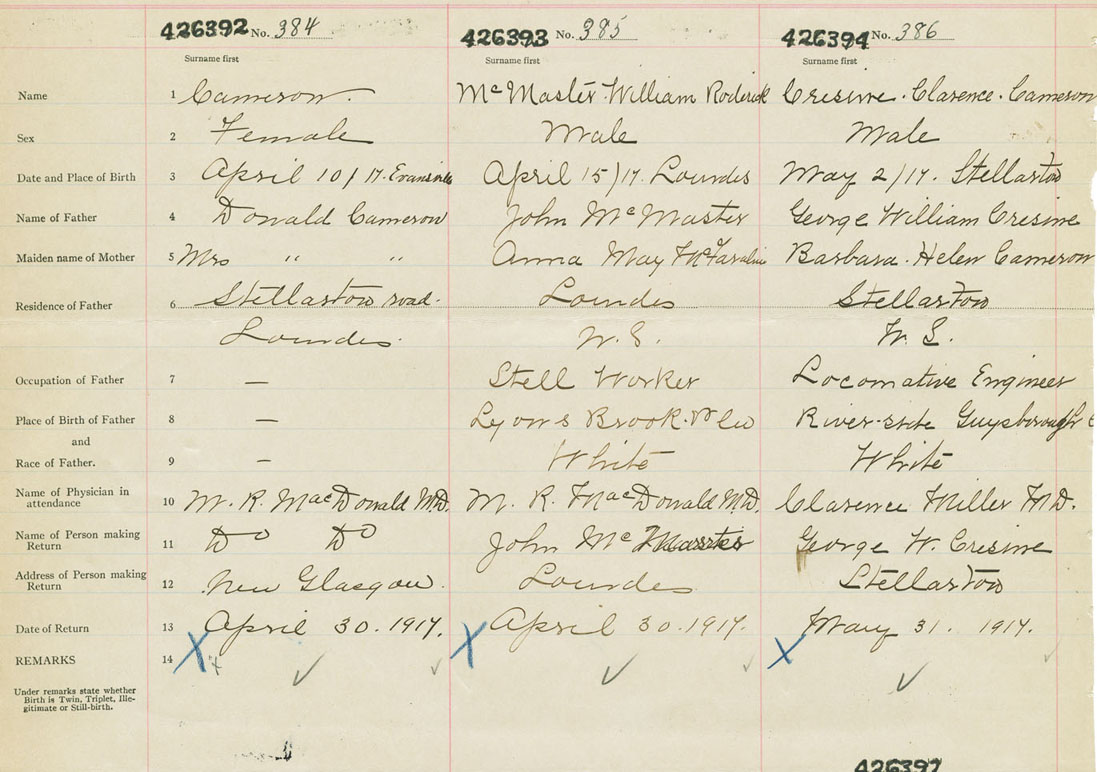 426392 No. 384 426393 No. 385 426394 No. 386
Surname first Surname first Surname first
Name 1 Cameron. McMaster William Roderick Cresine. Clarence. Cameron
Sex 2 Female Male Male
Date and Place of Birth 3 April 10/17. Evansville April 15/17. Lourdes May 2/17. Stellarton
Name of Father 4 Donald Cameron John McMaster George William Cresine
Maiden name of Mother 5 Mrs " " Anna May Barbara. Helen Cameron
Residence of Father 6 Stellarton road. Lourdes Stellarton
Lourdes. N. S. N. S.
Occupation of Father 7 — Stell Worker Locomative Engineer
Place of Birth of Father 8 — Lyons Brook. River-side Guysborough
and
Race of Father. 9 — White White
Name of Physician in
attendance 10 M. R. MacDonald M.D. M. R. MacDonald M.D. Clarence Miller M D.
Name of Person making
Return 11 Do Do John McMaster George W. Cresine
Address of Person making
Return 12 New Glasgow. Lourdes Stellarton
Date of Return 13 April 30. 1917. April 30. 1917. May 31. 1917.
REMARKS 14
Under remarks state whether
Birth is Twin, Triplet, Ille-
gitimate or Still-birth.
426397